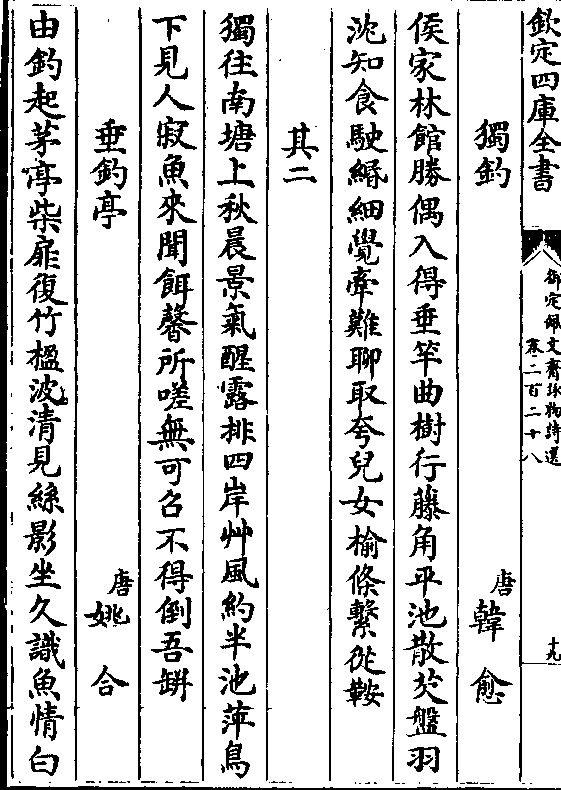 欽定四庫全書
御定佩文齋詠物詩選
卷二百二十八
十九
獨釣
唐 韓愈
侯家林館勝偶入得垂竿曲樹行藤角平池散芡盤羽
沈知食駛緡細覺牽難聊取夸兒女榆條繫從鞍
其二
獨往南塘上秋晨景氣醒露排四岸艸風約半池萍鳥
下見人寂魚來聞餌馨所嗟無可召不得倒吾缾
垂釣亭
唐 姚合
由釣起茅亭柴扉復竹楹波清見絲影坐久識魚情白